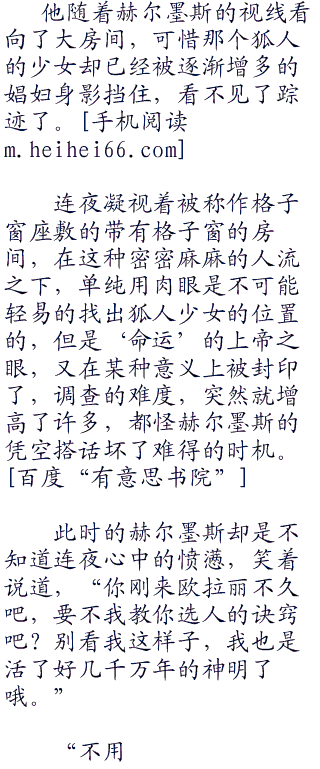 他随着赫尔墨斯的视线看
向了大房间，可惜那个狐人
的少女却已经被逐渐增多的
娼妇身影挡住，看不见了踪
迹了。[手机阅读
m.heihei66.com]
连夜凝视着被称作格子
窗座敷的带有格子窗的房
间，在这种密密麻麻的人流
之下，单纯用肉眼是不可能
轻易的找出狐人少女的位置
的，但是‘命运’的上帝之
眼，又在某种意义上被封印
了，调查的难度，突然就增
高了许多，都怪赫尔墨斯的
凭空搭话坏了难得的时机。
[百度“有意思书院”]
此时的赫尔墨斯却是不
知道连夜心中的愤懑，笑着
说道，“你刚来欧拉丽不久
吧，要不我教你选人的诀窍
吧？别看我这样子，我也是
活了好几千万年的神明了
哦。”
“不用